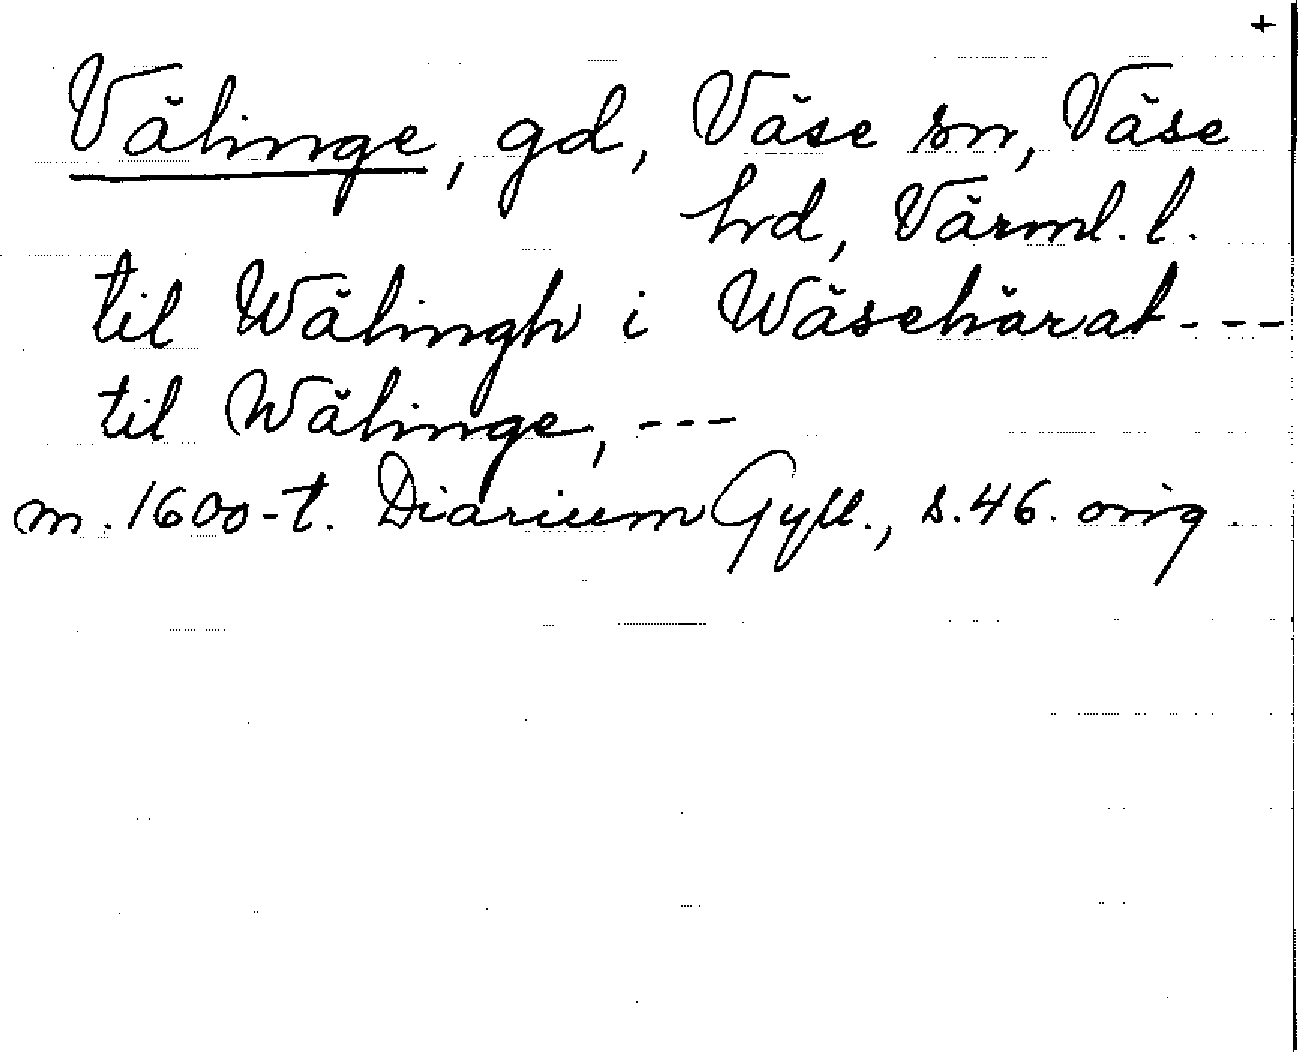 +
Välinge, gd, Väse sn, Väse
hd, Värml. l.
til Wälingh i Wäsehärat - - -
til Wälinge, - - -
m. 1600-t. Diarium Gyll., s. 46. orig.